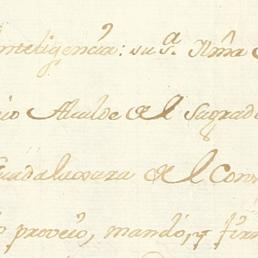 Inteligencia: su Sª. Ilma
Alcalde del Sagrad
Guadalaxara del Con
proveio, mandó, y fir